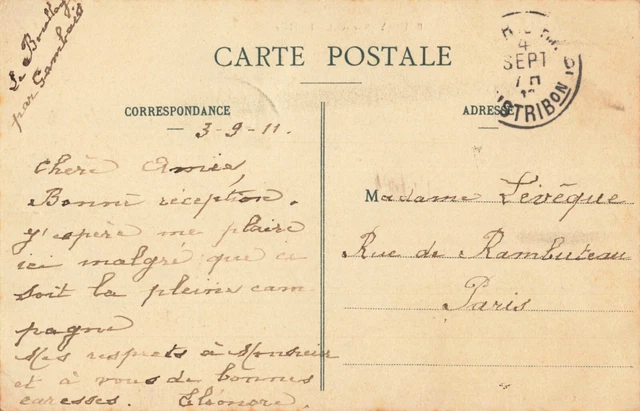 Le Boullay
par Gambais
CARTE POSTALE
4
SEPT
DISTRIBUTION
CORRESPONDANCE
ADRESSE
3-9-11.
Chère Amies,
Bonne réception.
J'espère me plaire
ici malgré que ce
soit la pleine cam
pagne
Mes respects à Monsieur
et à vous de bonnes
caresses. Eléonore.
Madame Lévêque
Rue de Rambuteau
Paris